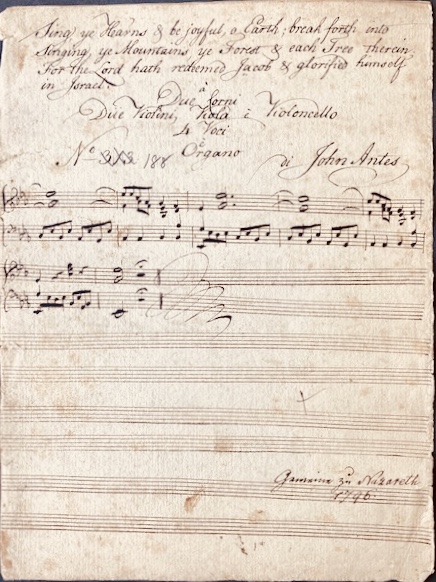 Sing ye Heavns & be joyful, o Earth; break forth into
Singing, ye Mountains, ye Forest & each Tree therein
For the Lord hath redeemed Jacob & glorified himself
in Israel.
à
Due Corni
Due Violini, Viola è Violoncello
4 Voci
è
Organo
No 188 di John Antes
Gemeine zu Nazareth
1796.